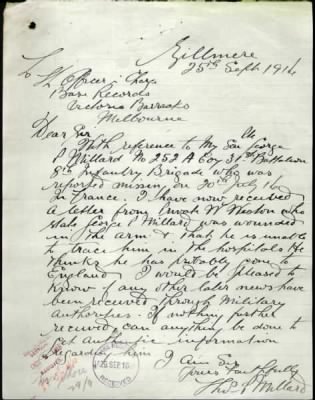 Gillmere
25th Sept 1916
To The Officer i Charge
Base Records
Victoria Barracks
Melbourne
Dear Sir
With reference to My Son George
P Millard No 252 A Coy 31st Battalion
8th Infantry Brigade who was
reported missing on 20th July 16
in France. I have now received
a letter from W who
state George P Millard was wounded
in the arm & that he is unable
to trace him in the hospitals He
thinks he has probably gone to
England I would be pleased to
know if any other later news have
been received through Military
Authorities. If nothing further
received, can anything be done to
get authentic information
regarding him
I Am Sir
Yours Faithfully
Thos P Millard
SEP 16
RECEIVED
29/9